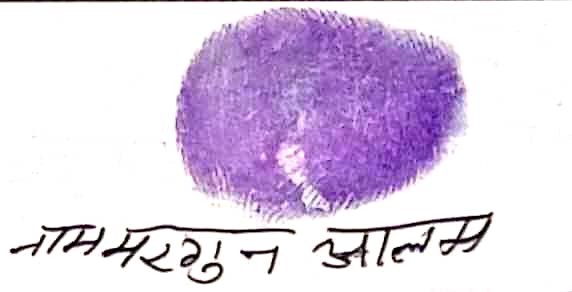 नाम मरगुन आलम